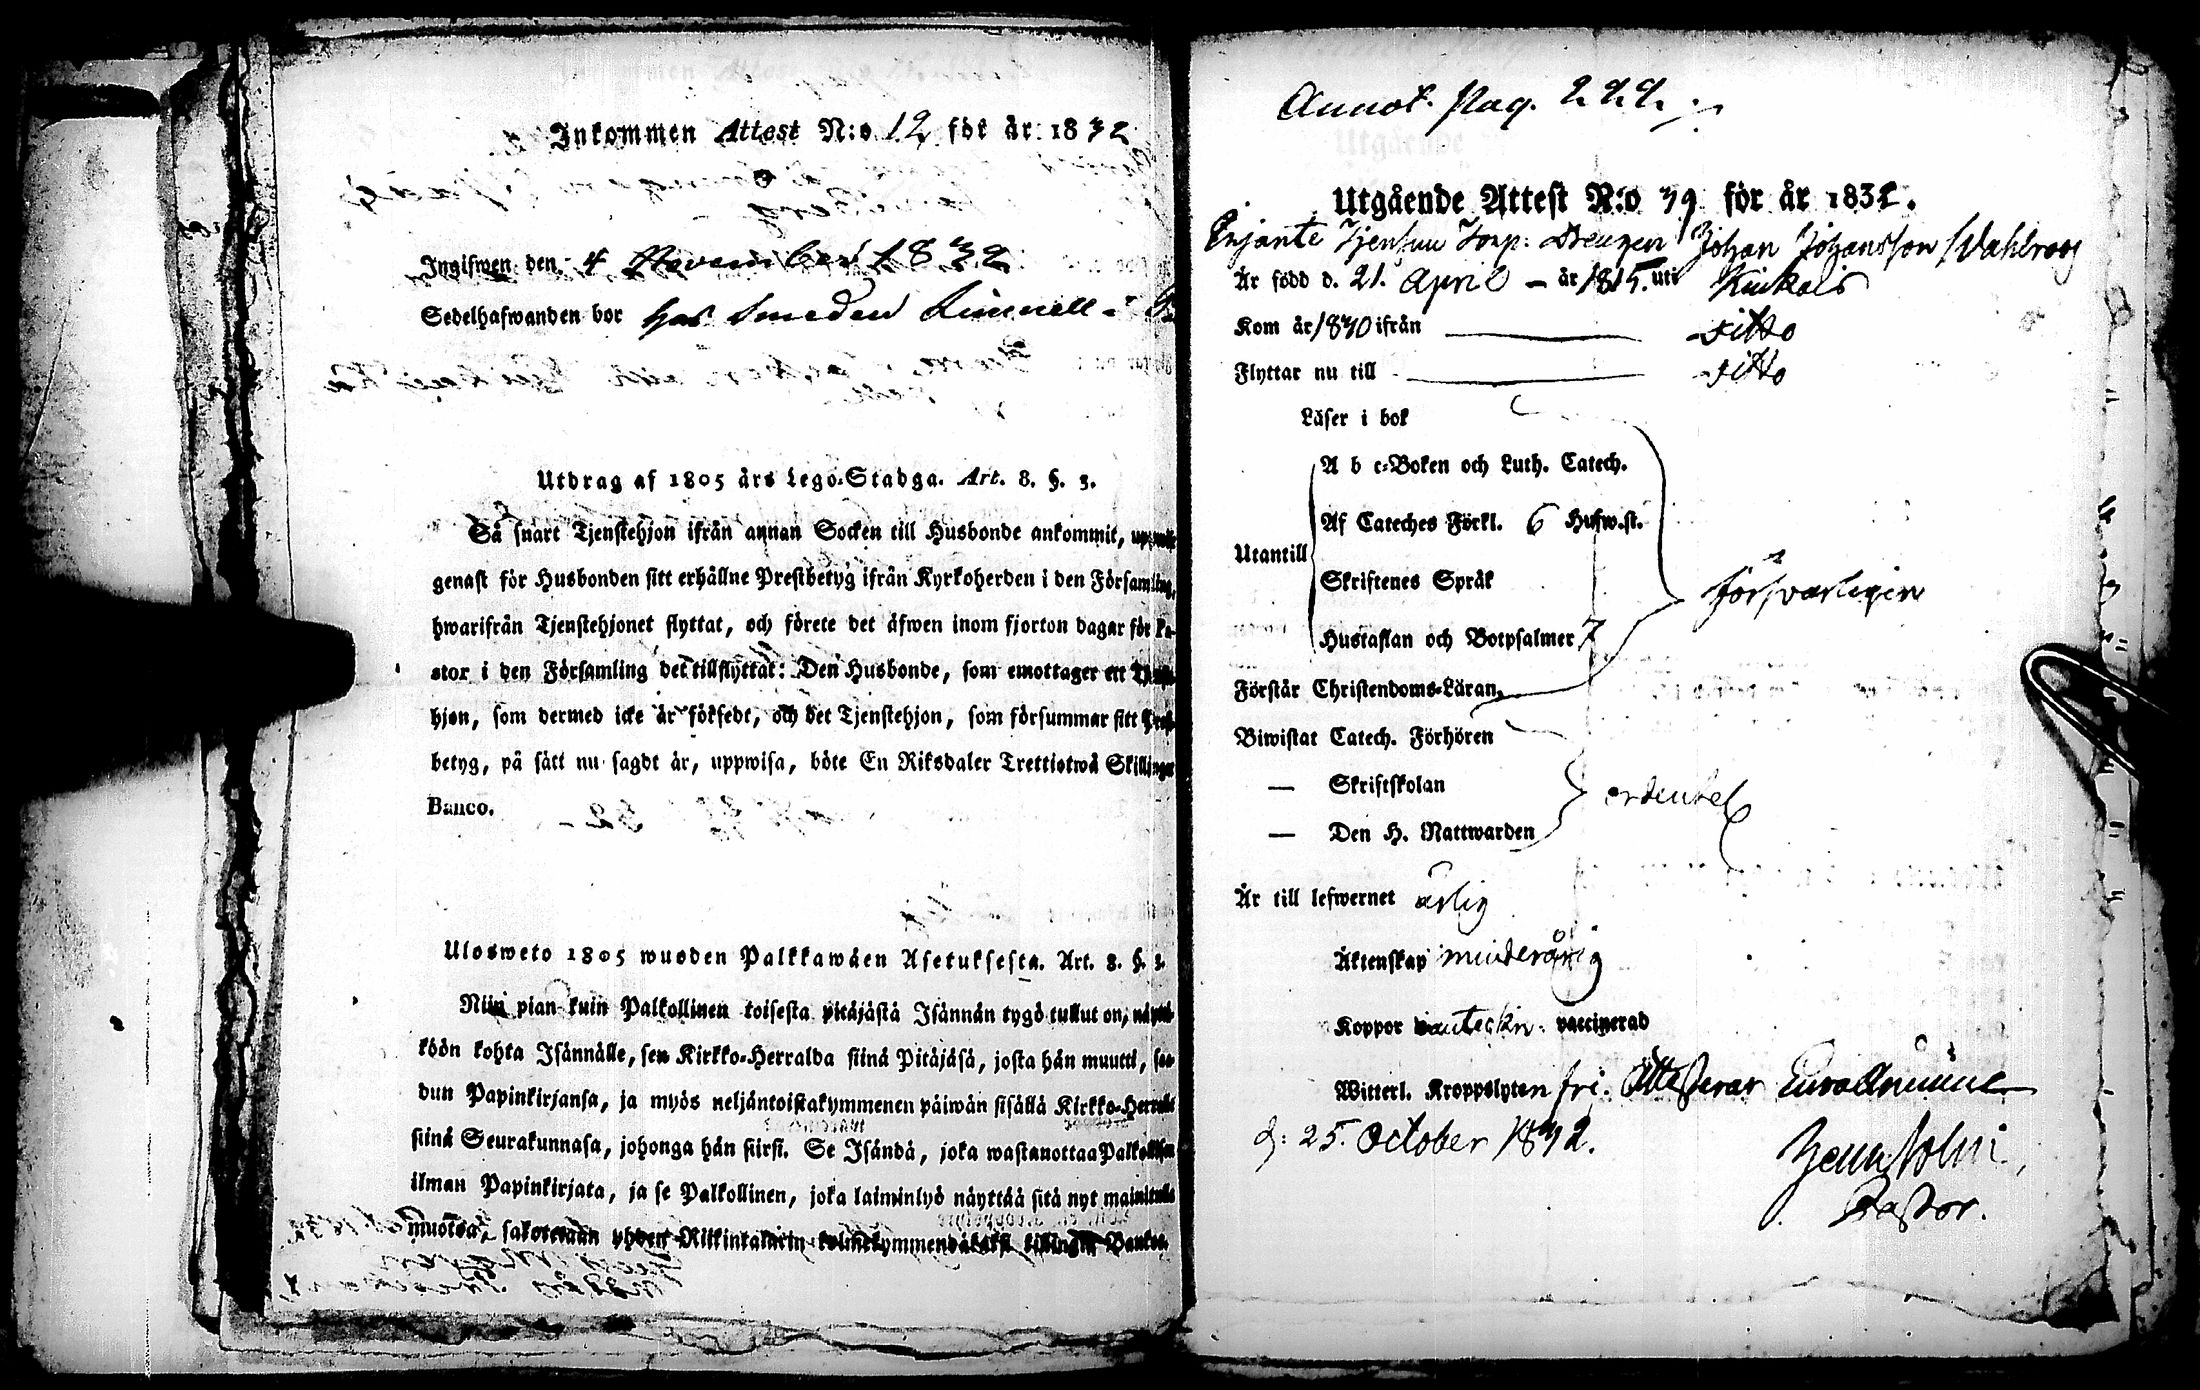 Inkommen Attest N:o 12 för år 1832
Ingifwen den 4 November 1832
Sedelhafwanden bor hos Smeden Linnell i
Utdrag af 1805 års Lego-Stadga. Art. 8. §. 3.
Så snart Tjenstehjon ifrån annan Socken till Husbonde ankommit,
genast för Husbonden sitt erhållne Prestbetyg ifrån Kyrkoherden i den Församling,
hwarifrån Tjenstehjonet flyttat, och förete det äfwen inom fjorton dagar för Pa-
stor i den Församling det tillflyttat: Den Husbonde, som emottager ett
hjon, som dermed icke är försedt, och det Tjenstehjon, som försummar sitt
betyg, på sätt nu sagdt är, uppwisa, böte En Riksdaler Trettiotwå Skillingar
Banco.
Ulosweto 1805 wuoden Palkkawäen Asetuksesta. Art. 8. §. 3.
Niin pian kuin Palkollinen toisesta pitäjästä Isännän tygö tullut on, näyttä-
köön kohta Isännälle, sen Kirkko-Herralda siinä Pitäjäsä, josta hän muutti, saa-
dun Papinkirjansa, ja myös neljäntoistakymmenen päiwän sisällä Kirkko-Herralle
siinä Seurakunnasa, johonga hän siirsi. Se Isändä, joka wastanottaa Palkollisen
ilman Papinkirjata, ja se Palkollinen, joka laiminlyö näyttää sitä nyt mainitulla
muotoa, sakotetaan yhden Riikintalarin kolmekymmendäkaksi killingiä Bankoa.
Annot. Pag. 222.
Utgående Attest N:o 39 för år 1832.
Johan Johansson Wahlroos
Är född d. 21. April – år 1815. uti Kiukais
Kom år 1830 ifrån ditto
Flyttar nu till ditto
Läser i bok
A b c-Boken och Luth. Catech.
Af Cateches Förkl. 6 Hufw.st.
Utantill
Skriftenes Språk
försvarligen
Hustaflan och Botpsalmer 7
Förstår Christendoms-Läran
Biwistat Catech. Förhören
— Skriftskolan
ordentel
— Den H. Nattwarden
Är till lefwernet ärlig
Äktenskap minderårig
Koppor vaccinerad
Witterl. Kroppslyten fri. Attesterar Eura
d: 25. October 1832.
Pastor.